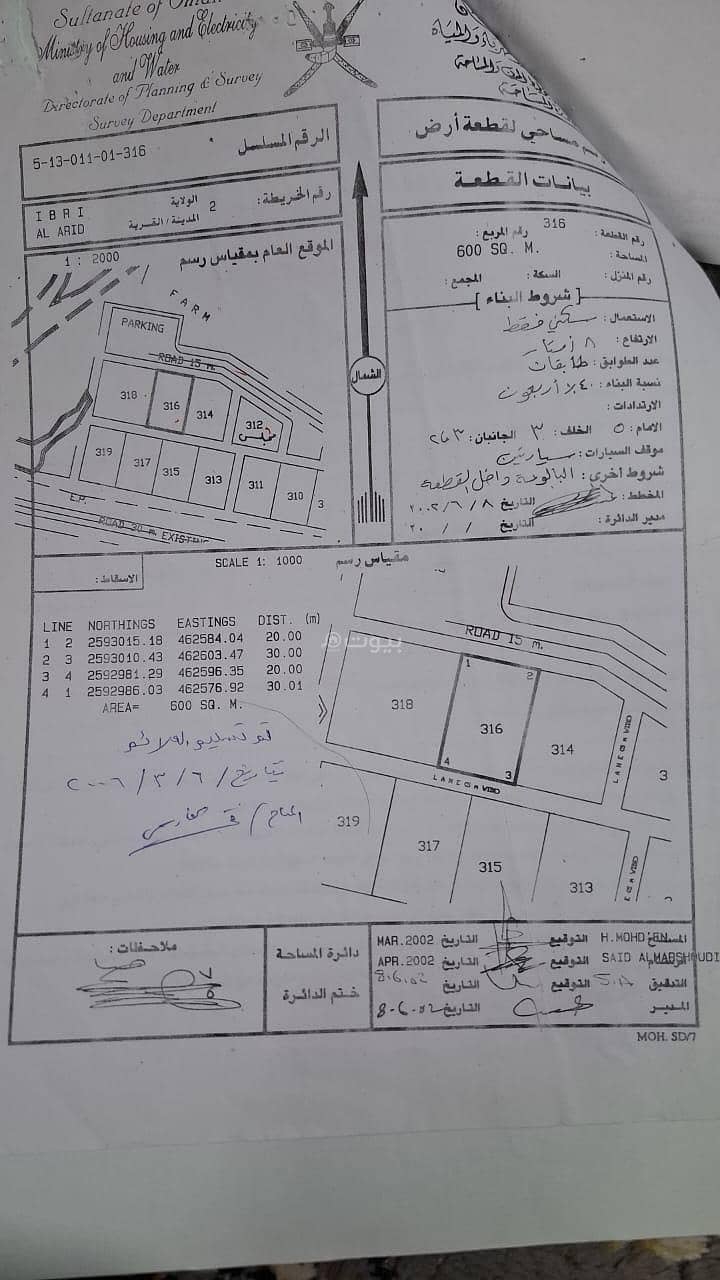 Sultanate of Oman
Ministry of Housing and Electricity
and Water
Directorate of Planning & Survey
Survey Department
رسم مساحي لقطعة أرض
الرقم المسلسل
5-13-011-01-316
بيانات القطعة
رقم الخريطة: 2
الولاية IBRI
المدينة / القرية AL ARID
رقم القطعة: 316 رقم المربع:
المساحة: 600 SQ. M.
رقم المنزل: السكة: المجمع:
الموقع العام بمقياس رسم 1 : 2000
[ شروط البناء ]
الاستعمال: سكني فقط
الارتفاع: ٨ أمتار
عدد الطوابق: طابقان
نسبة البناء: ٤٠٪ أربعون
الارتدادات:
الامام: ٥ الخلف: ٣ الجانبان: ٣
موقف السيارات: سيارتين
شروط أخرى: البالوعة داخل القطعة
المخطط: التاريخ ٢٠٠٢/٦/٨
مدير الدائرة: التاريخ / / ٢٠
الشمال
FARM
PARKING
ROAD 15 m.
318
316
314
312
مجلس
319
317
315
313
311
310
3
E.P.
ROAD 30 m. EXISTING
SCALE 1: 1000 مقياس رسم
الاسقاط:
LINE NORTHINGS EASTINGS DIST. (m)
1 2 2593015.18 462584.04 20.00
2 3 2593010.43 462603.47 30.00
3 4 2592981.29 462596.35 20.00
4 1 2592986.03 462576.92 30.01
AREA= 600 SQ. M.
بيوت
ROAD 15 m.
1
2
318
316
314
3
4
3
LANE 6 m WIDE
LANE 6 m WIDE
319
317
315
313
تم تسليم العلائم
بتاريخ / ٦ / ٣ / ٢٠٠٦
المساح /
ملاحظات:
دائرة المساحة
ختم الدائرة
المساح H.MOHD التوقيع التاريخ MAR.2002
الرسام SAID ALMAQSHOUDI التوقيع التاريخ APR.2002
التدقيق التوقيع التاريخ 8.6.02
المدير التاريخ 8-6-02
MOH. SD/7